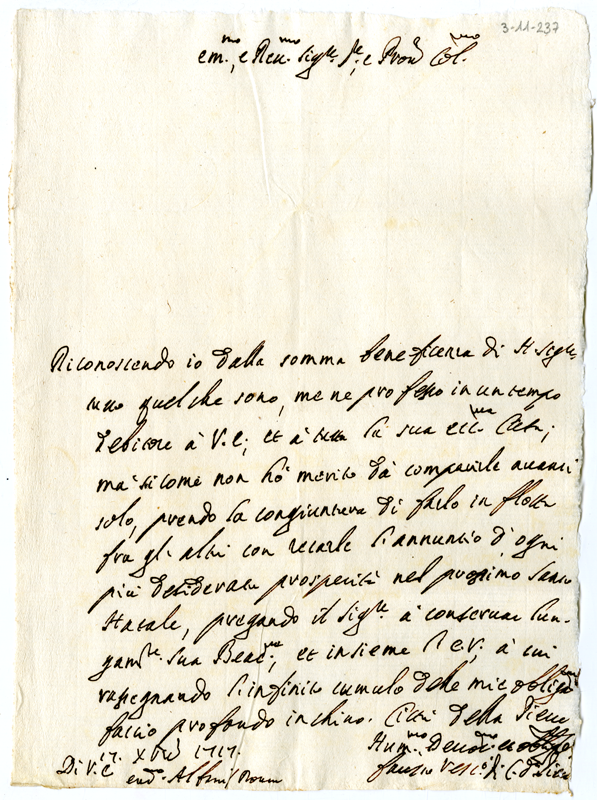 3-11-237
em.mo, e Reu.mo Sig.re, e Pron Col.mo
Riconoscendo io dalla somma beneficenza di N. Sig.re
tutto quel che sono, me ne professo in un tempo
debitore à V. E.; et à tutta la sua ecc.ma Casa;
ma sicome non hò merito dà comparirle auanti
solo, prendo la congiuntura di farlo in flotta
frà gl'altri con recarle l'annuntio d'ogni
più desiderata prosperità nel prossimo Santo
Natale, pregando il Sig.re à conseruar lun-
gam.te Sua Beat.ne, et insieme l'E. V.; à cui
rassegnando l'infinito cumulo delle mie
faccio profondo inchino. Città della Pieue
17. Xbre 1717.
Di V. E. Hum.mo Deuot.mo et
em. Albani Roma fausto Vesc.o di C. d.